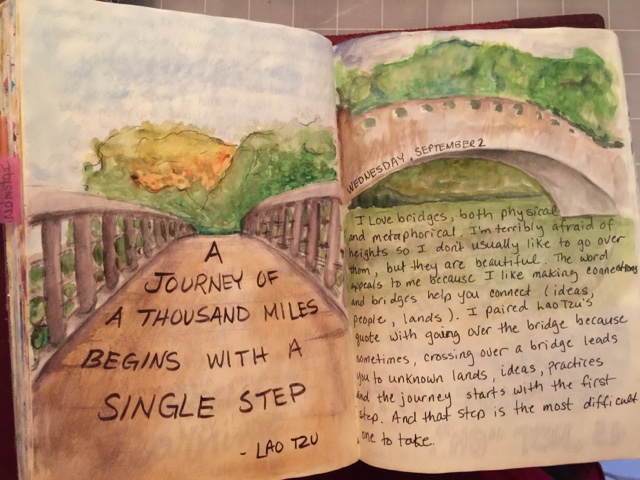 A
JOURNEY OF
A THOUSAND MILES
BEGINS WITH A
SINGLE STEP
- LAO TZU
WEDNESDAY, SEPTEMBER 2
I Love bridges, both physical
and metaphorical. I'm terribly afraid of
heights so I don't usually like to go over
them, but they are beautiful. The word
appeals to me because I like making connections
and bridges help you connect (ideas,
people, lands). I paired Lao Tzu's
quote with going over the bridge because
sometimes, crossing over a bridge leads
you to unknown lands, ideas, practices
and the journey starts with the first
step. And that step is the most difficult
one to take.